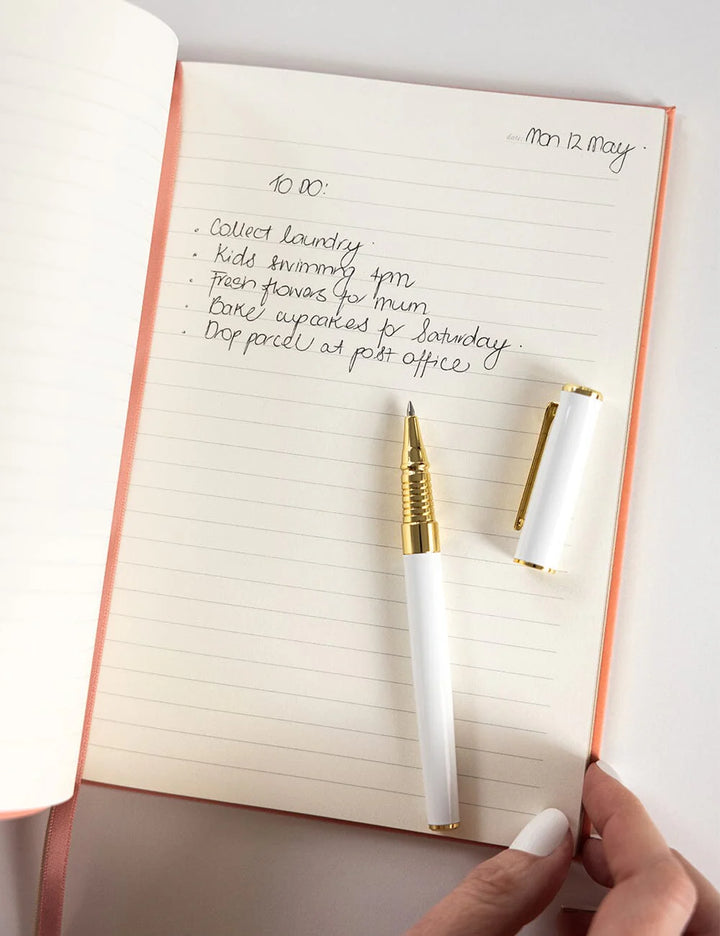 date: Mon 12 May.
TO DO:
• Collect laundry.
• Kids swimming 4pm
• Fresh flowers for mum
• Bake cupcakes for Saturday.
• Drop parcel at post office